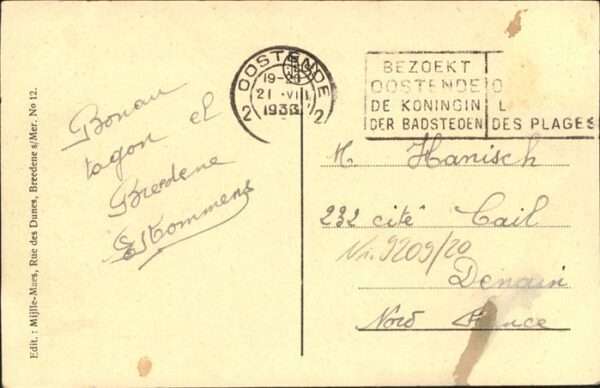 Edit : Mijlle-Maes, Rue des Dunes, Breedene s/Mer. No 12.
Bonan
tagon el
Bredene
OOSTENDE
19-20
21 VII
1933
2 2
BEZOEKT
OOSTENDE O
DE KONINGIN L
DER BADSTEDEN DES PLAGES
M. Hanisch
232 cité Cail
Nr. 9209/20
Denain
Nord France